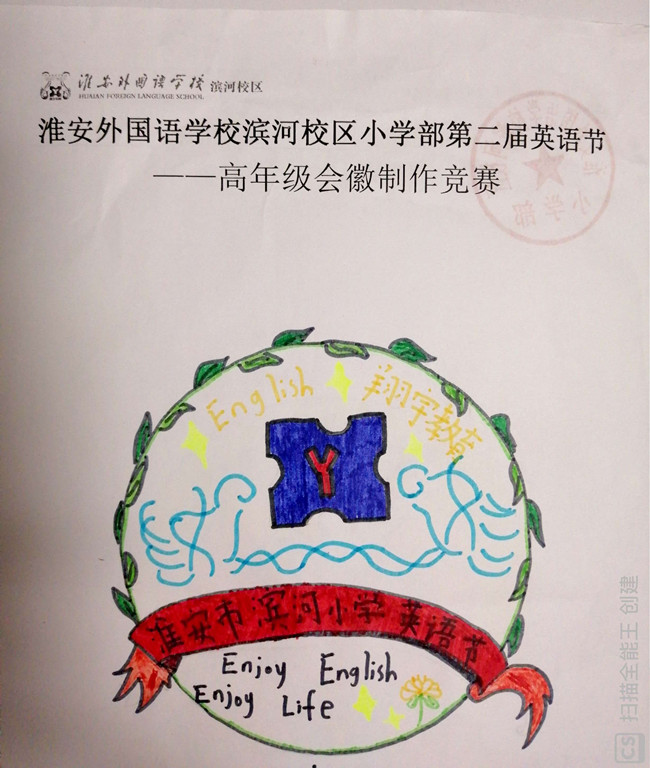 淮安外国语学校 滨河校区
HUAIAN FOREIGN LANGUAGE SCHOOL
淮安外国语学校滨河校区小学部第二届英语节
——高年级会徽制作竞赛
小学部
English 翔宇教育
Y
淮安市滨河小学英语节
Enjoy English
Enjoy Life
CS 扫描全能王 创建